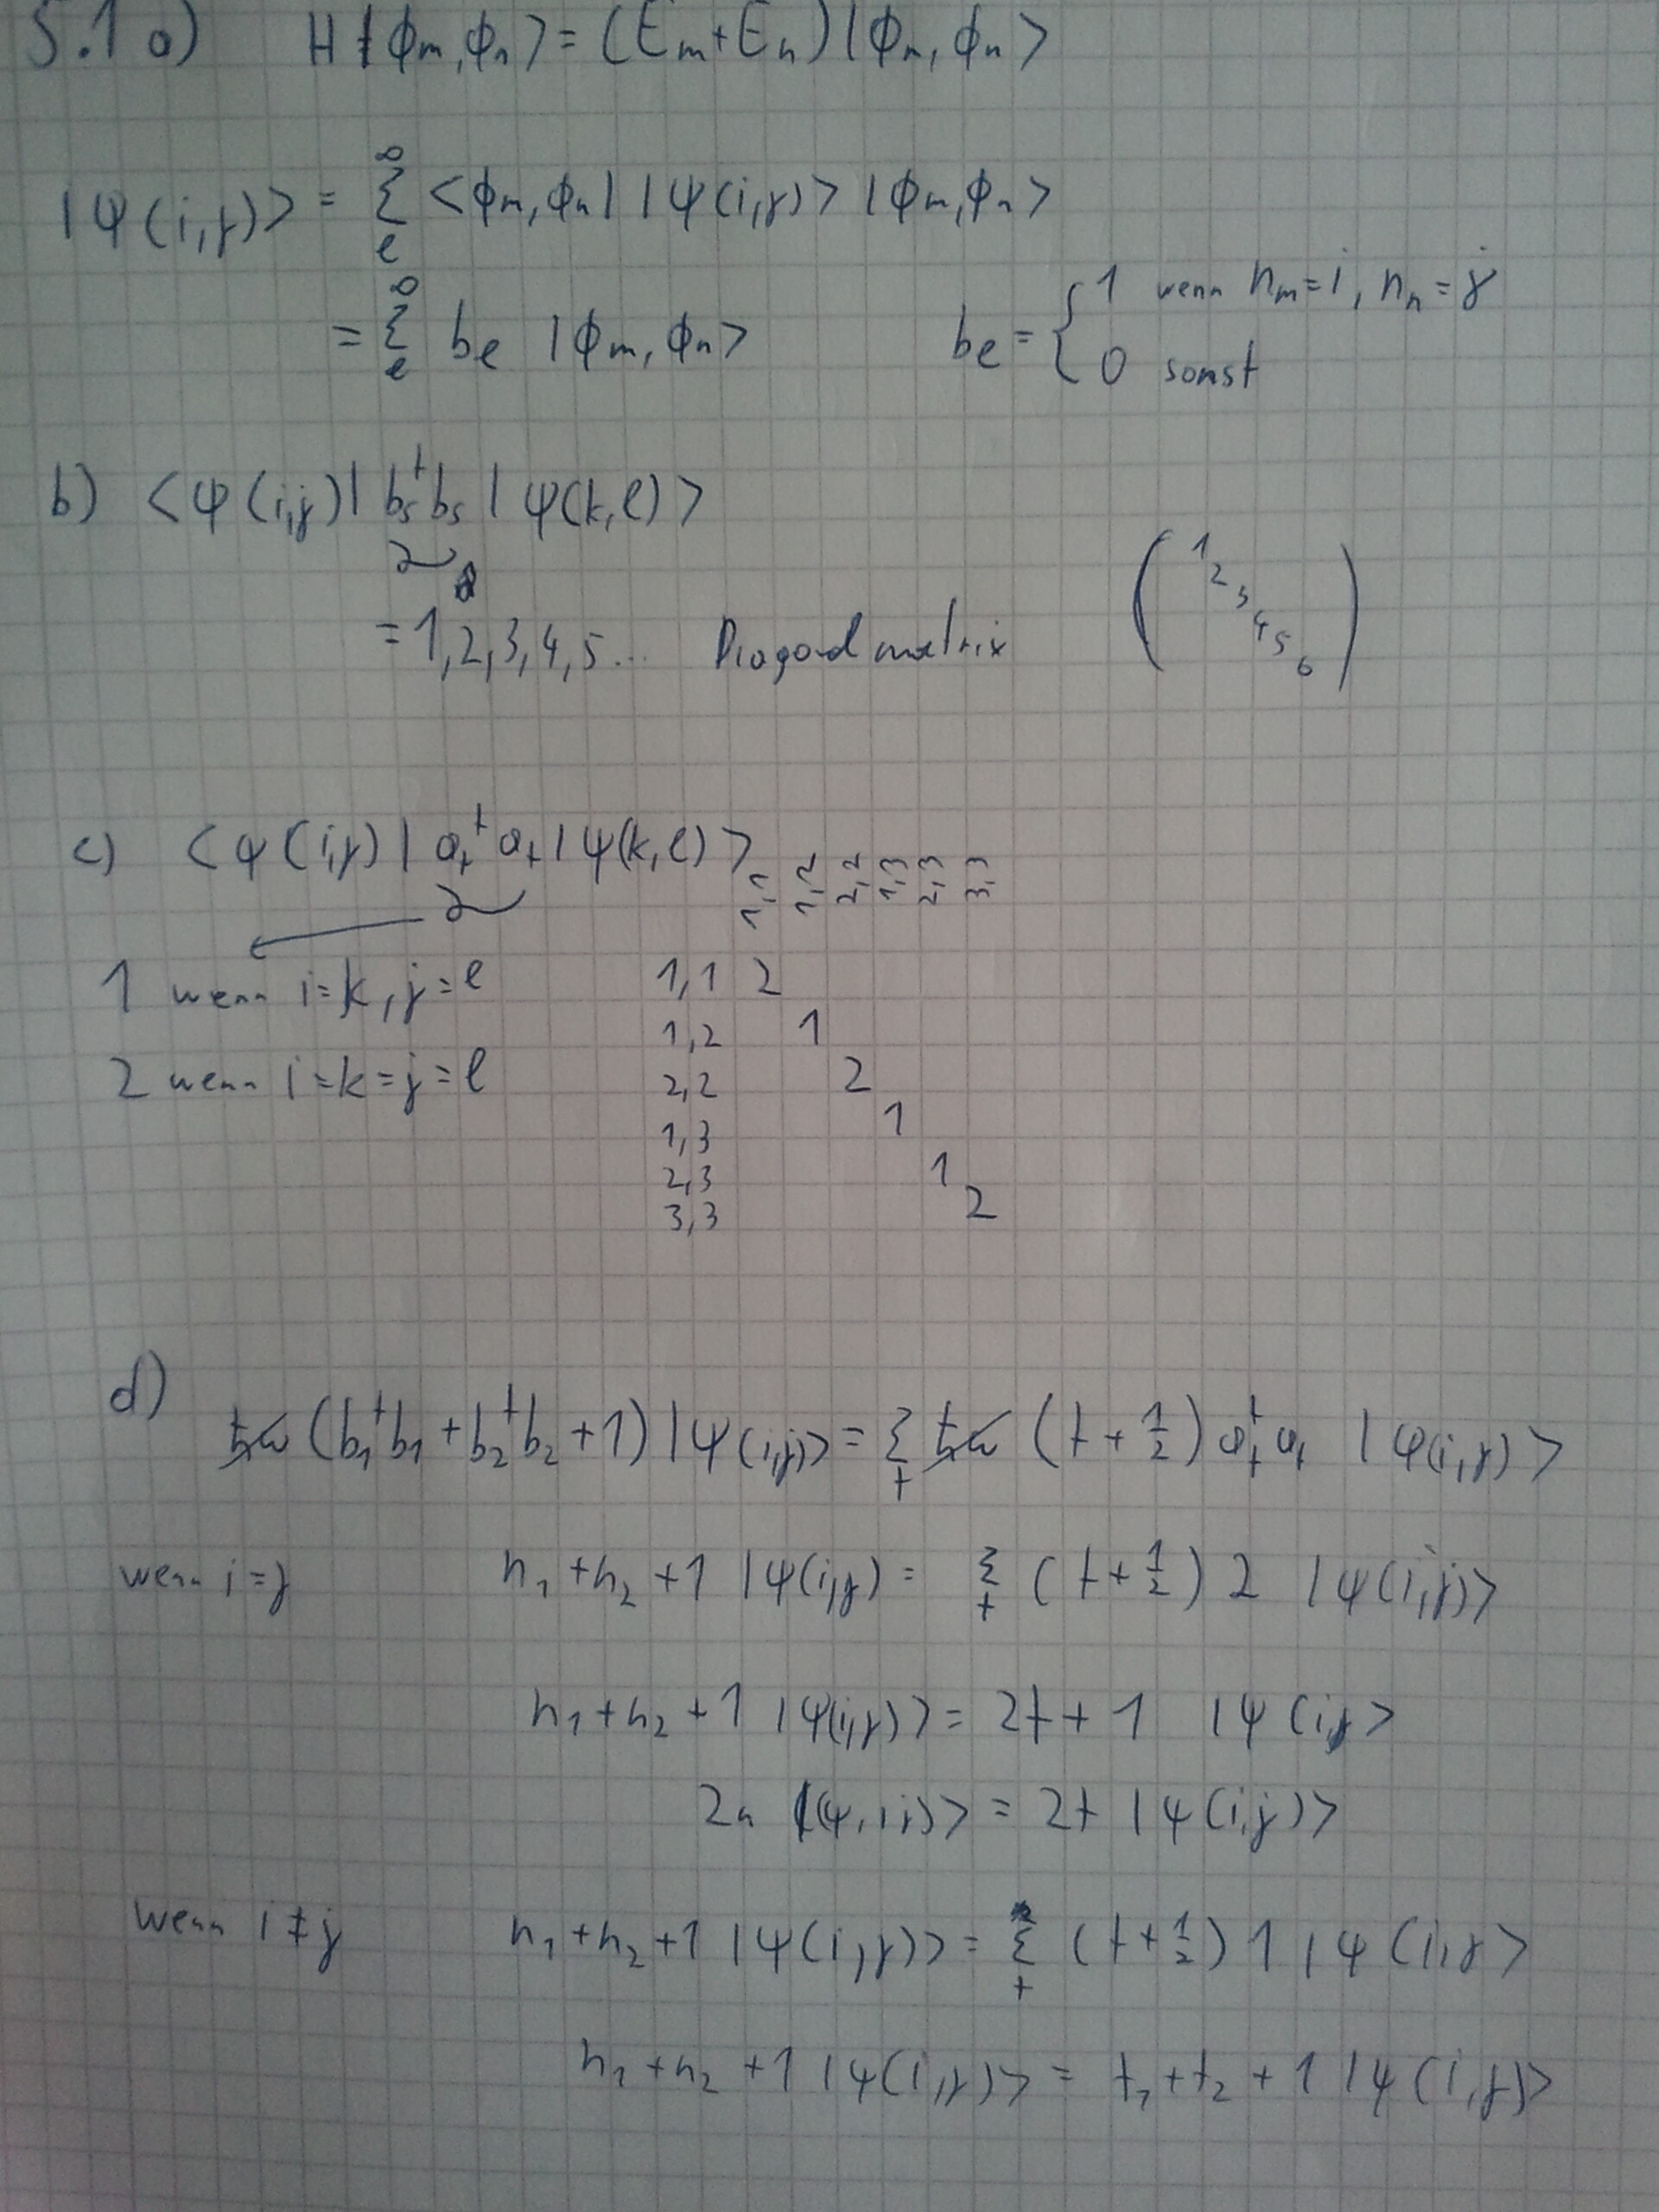 5.1 a) H |ϕm, ϕn> = (Em + En) |ϕm, ϕn>
|ψ(i,j)> = ∞Σe <ϕm, ϕn| |ψ(i,j)> |ϕm, ϕn>
= ∞Σe be |ϕm, ϕn> be = { 1 wenn nm = i, nn = j
0 sonst
b) <ψ(i,j)| bs† bs |ψ(k,l)>
= 1,2,3,4,5... Diagonalmatrix ( 1 2 3 4 5 6 )
c) <ψ(i,j)| at† at |ψ(k,l)>
1,1 1,2 2,2 1,3 2,3 3,3
1 wenn i=k, j=l 1,1 2
1,2 1
2 wenn i=k=j=l 2,2 2
1,3 1
2,3 1
3,3 2
d) ħω (b1†b1 + b2†b2 + 1) |ψ(i,j)> = Σt ħω (t + 1/2) at† at |ψ(i,j)>
wenn i=j n1 + n2 + 1 |ψ(i,j) = Σt (t + 1/2) 2 |ψ(i,j)>
n1 + n2 + 1 |ψ(i,j)> = 2t + 1 |ψ(i,j>
2n |ψ(i,j)> = 2t |ψ(i,j)>
wenn i≠j n1 + n2 + 1 |ψ(i,j)> = Σt (t + 1/2) 1 |ψ(i,j>
n1 + n2 + 1 |ψ(i,j)> = t1 + t2 + 1 |ψ(i,j)>